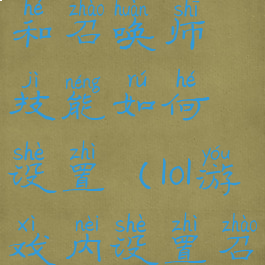 hé zhào huàn shī
和召唤师
jì néng rú hé
技能如何
shè zhì yóu
设置（lol游
xì nèi shè zhì zhào
戏内设置召